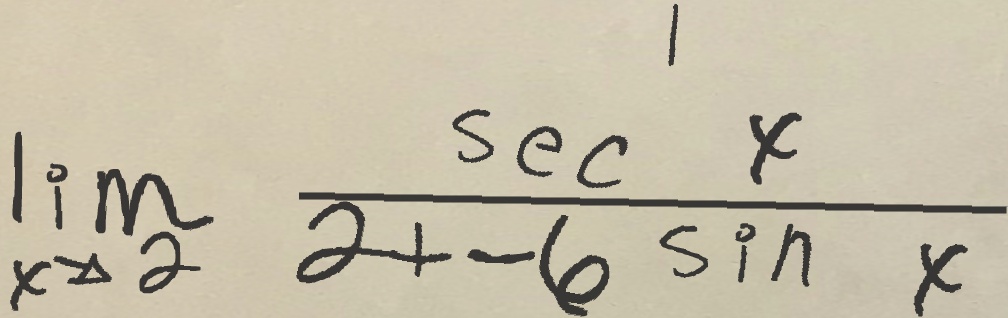 \lim_{x \to 2} \frac{\sec^{1} x}{2 + -6 \sin x}